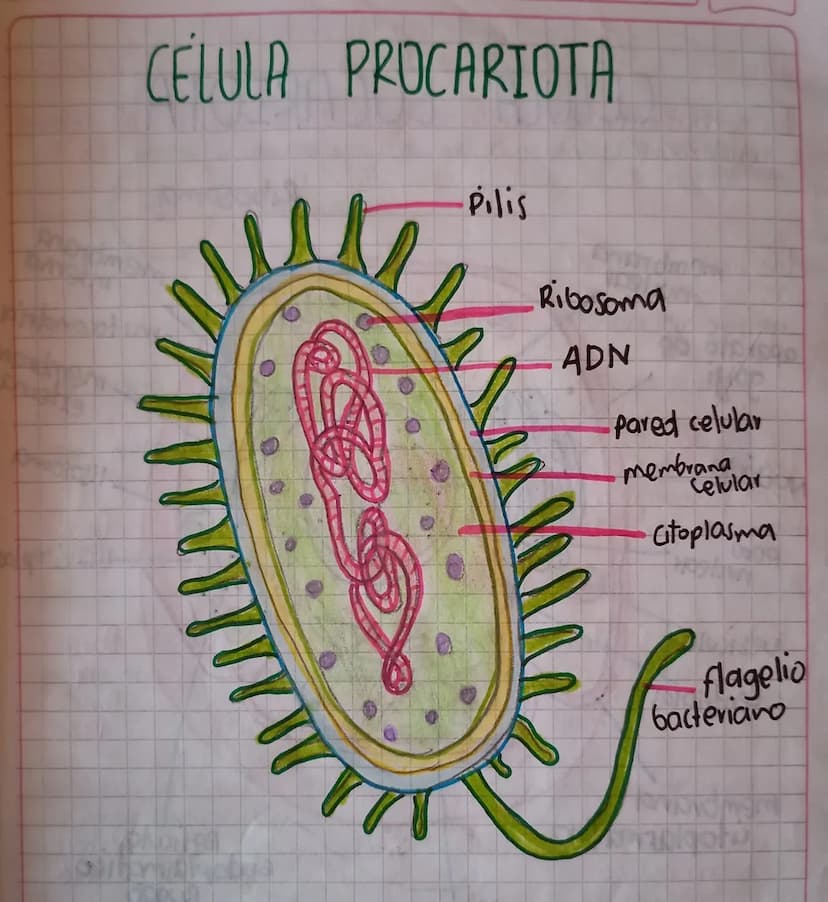 CÉLULA PROCARIOTA
Pilis
Ribosoma
ADN
pared celular
membrana
celular
Citoplasma
flagelio
bacteriano